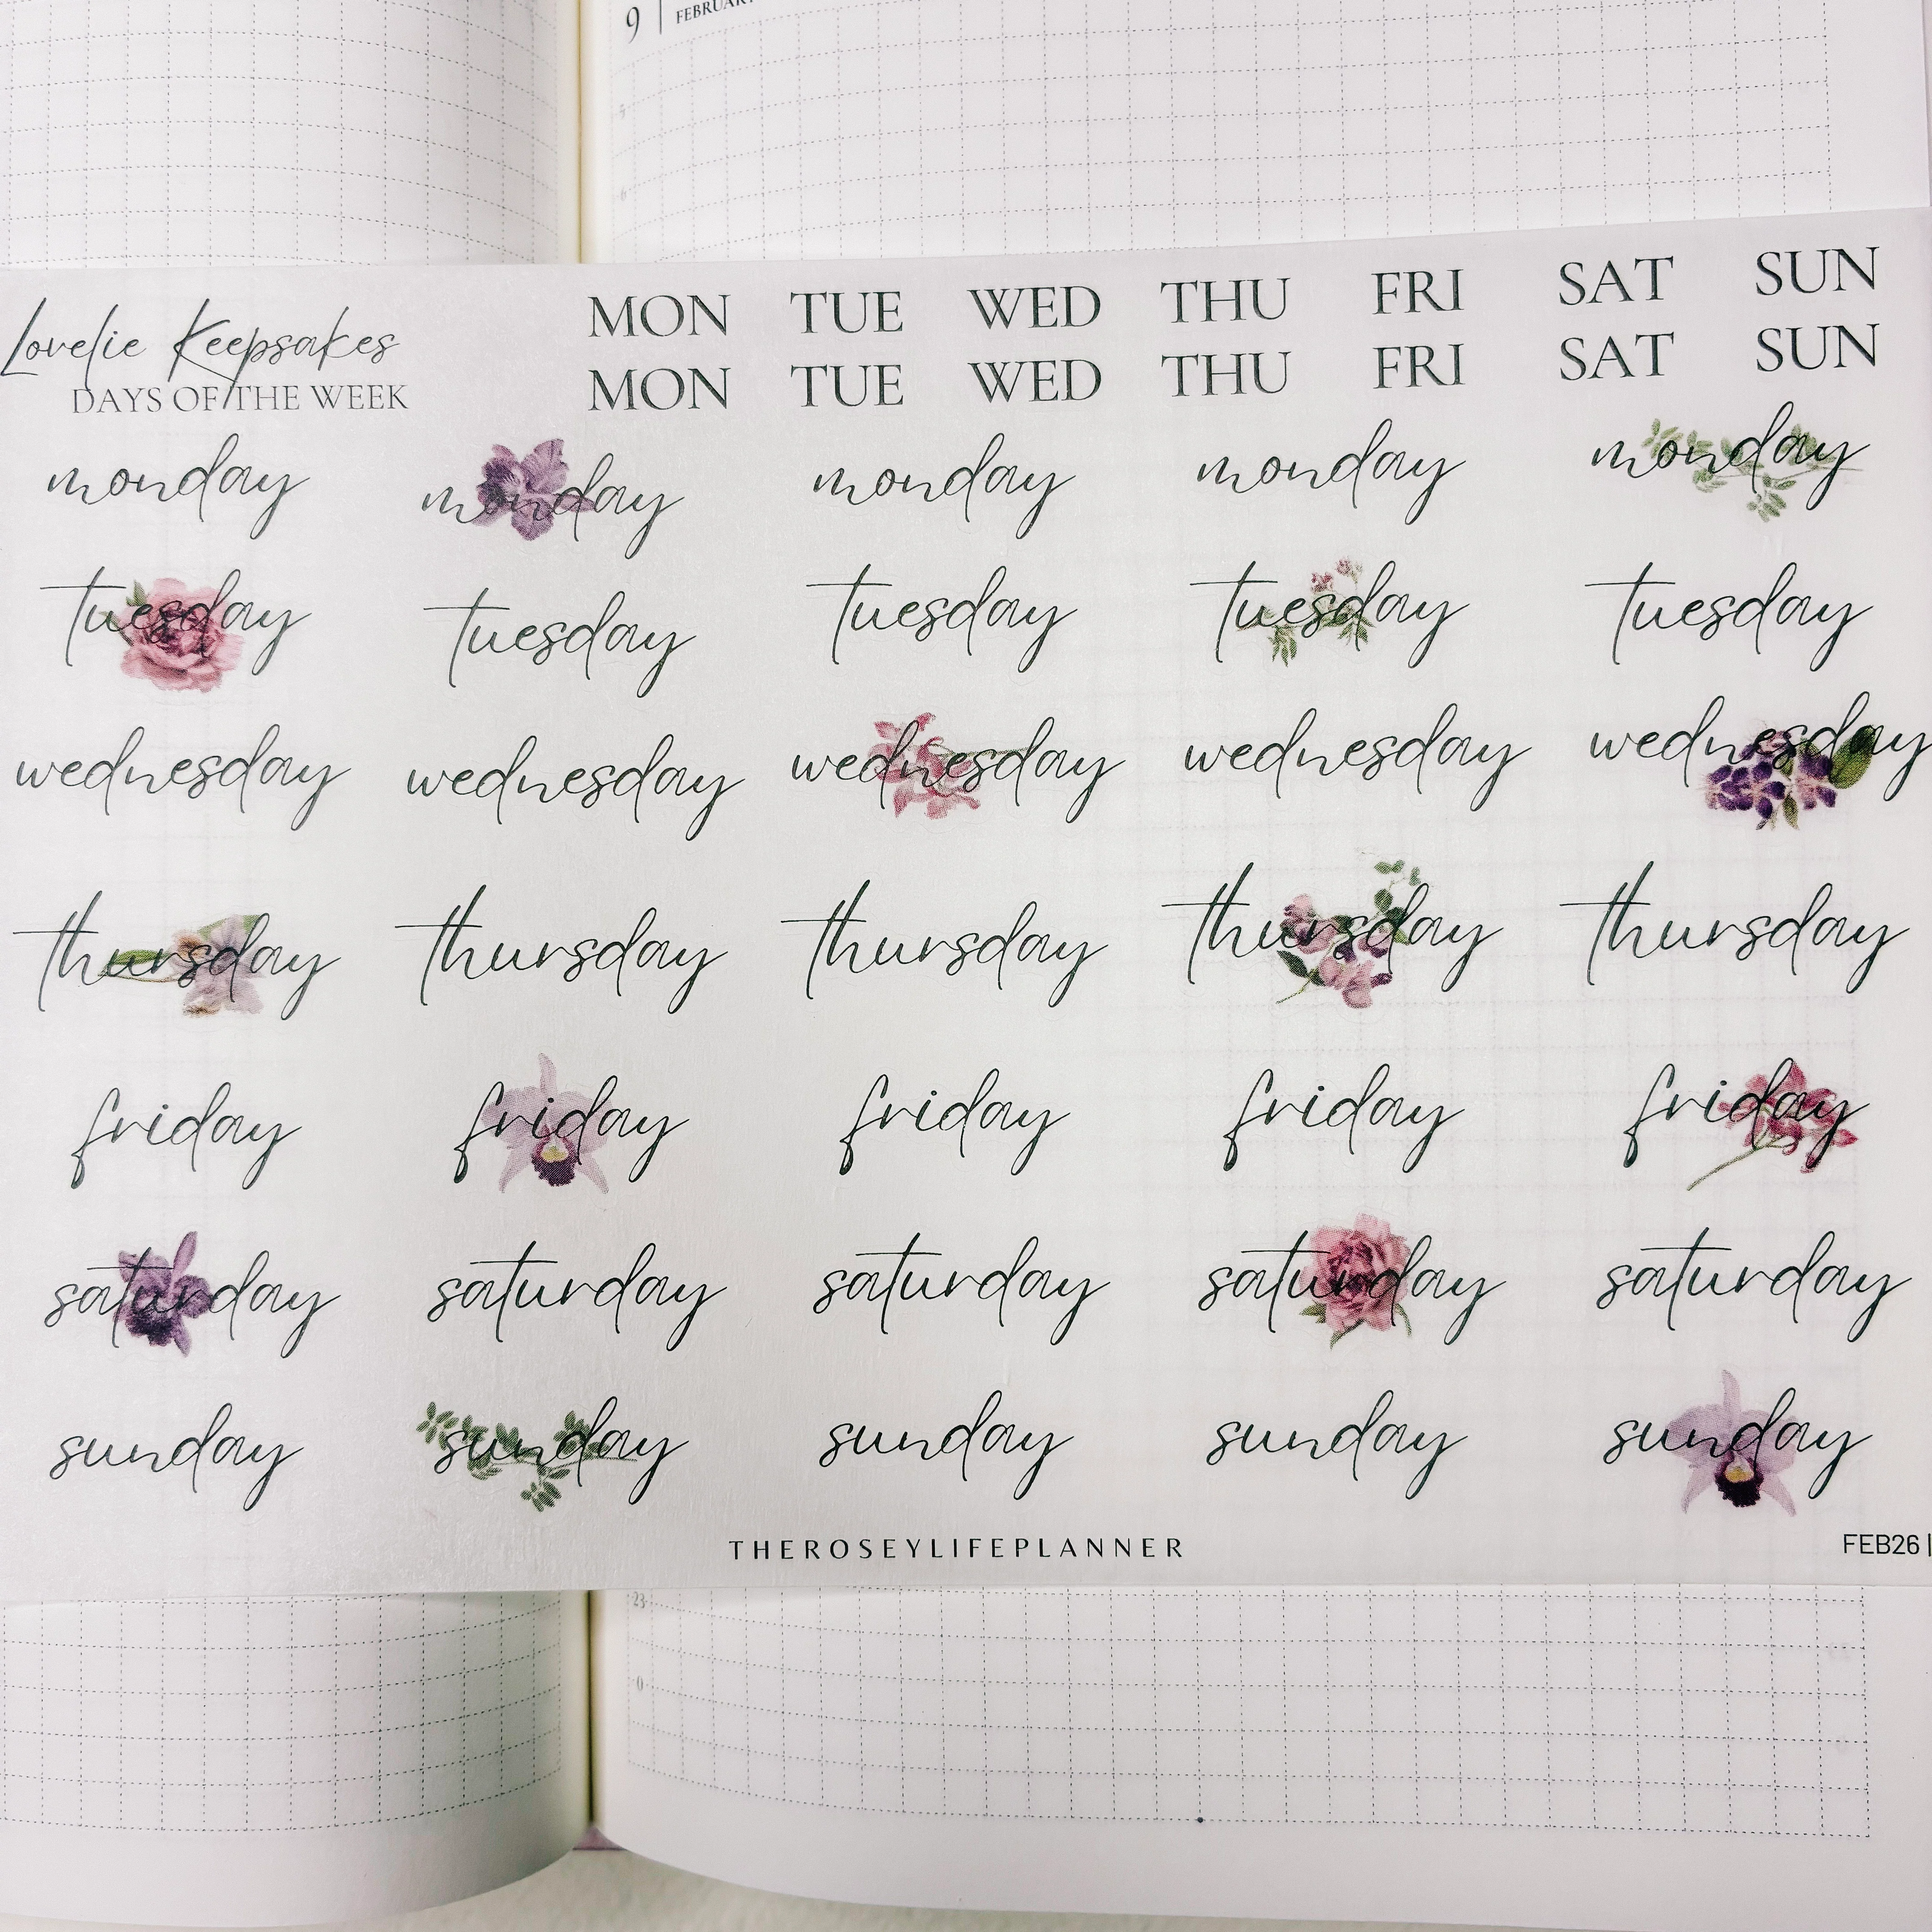 9 | FEBRUARY
5
6
Lovelie Keepsakes
DAYS OF THE WEEK
MON TUE WED THU FRI SAT SUN
MON TUE WED THU FRI SAT SUN
monday monday monday monday monday
tuesday tuesday tuesday tuesday tuesday
wednesday wednesday wednesday wednesday wednesday
thursday thursday thursday thursday thursday
friday friday friday friday friday
saturday saturday saturday saturday saturday
sunday sunday sunday sunday sunday
THEROSEYLIFEPLANNER
FEB26 |
23
0